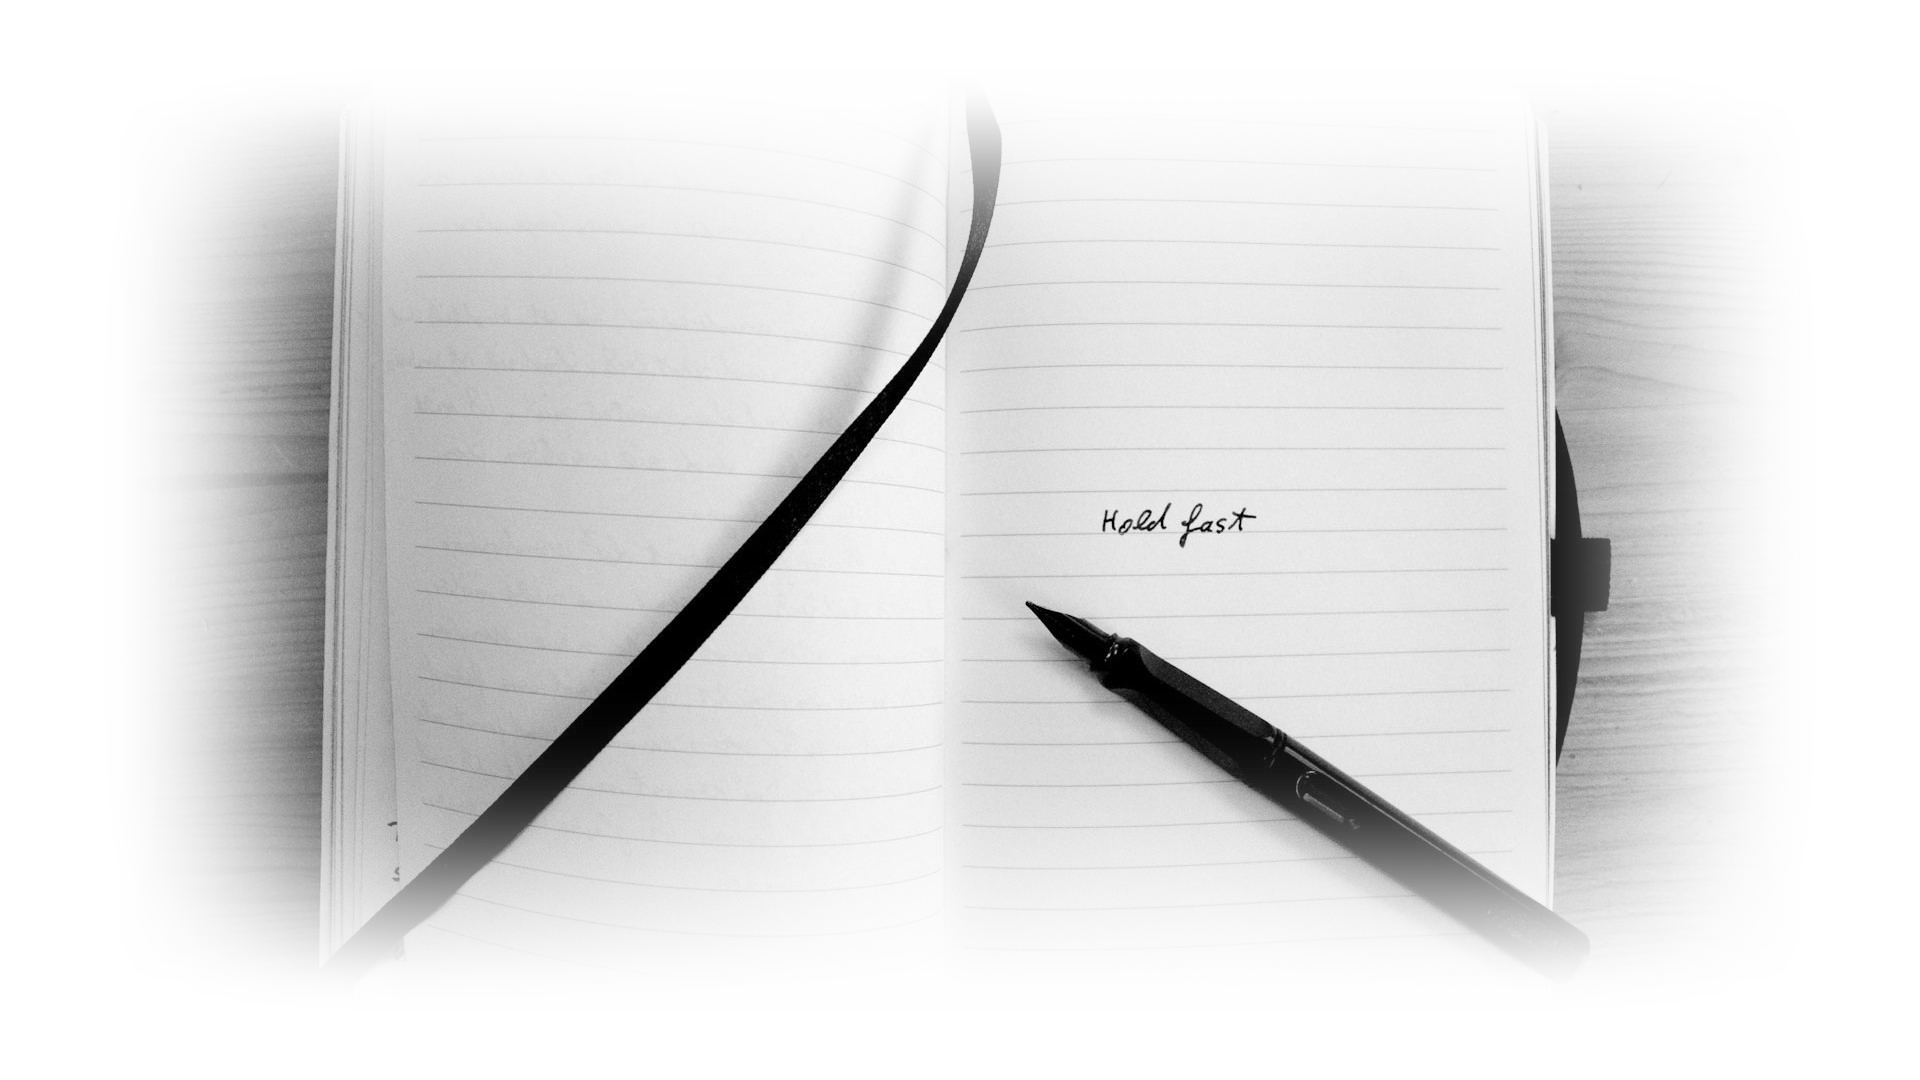 Hold fast